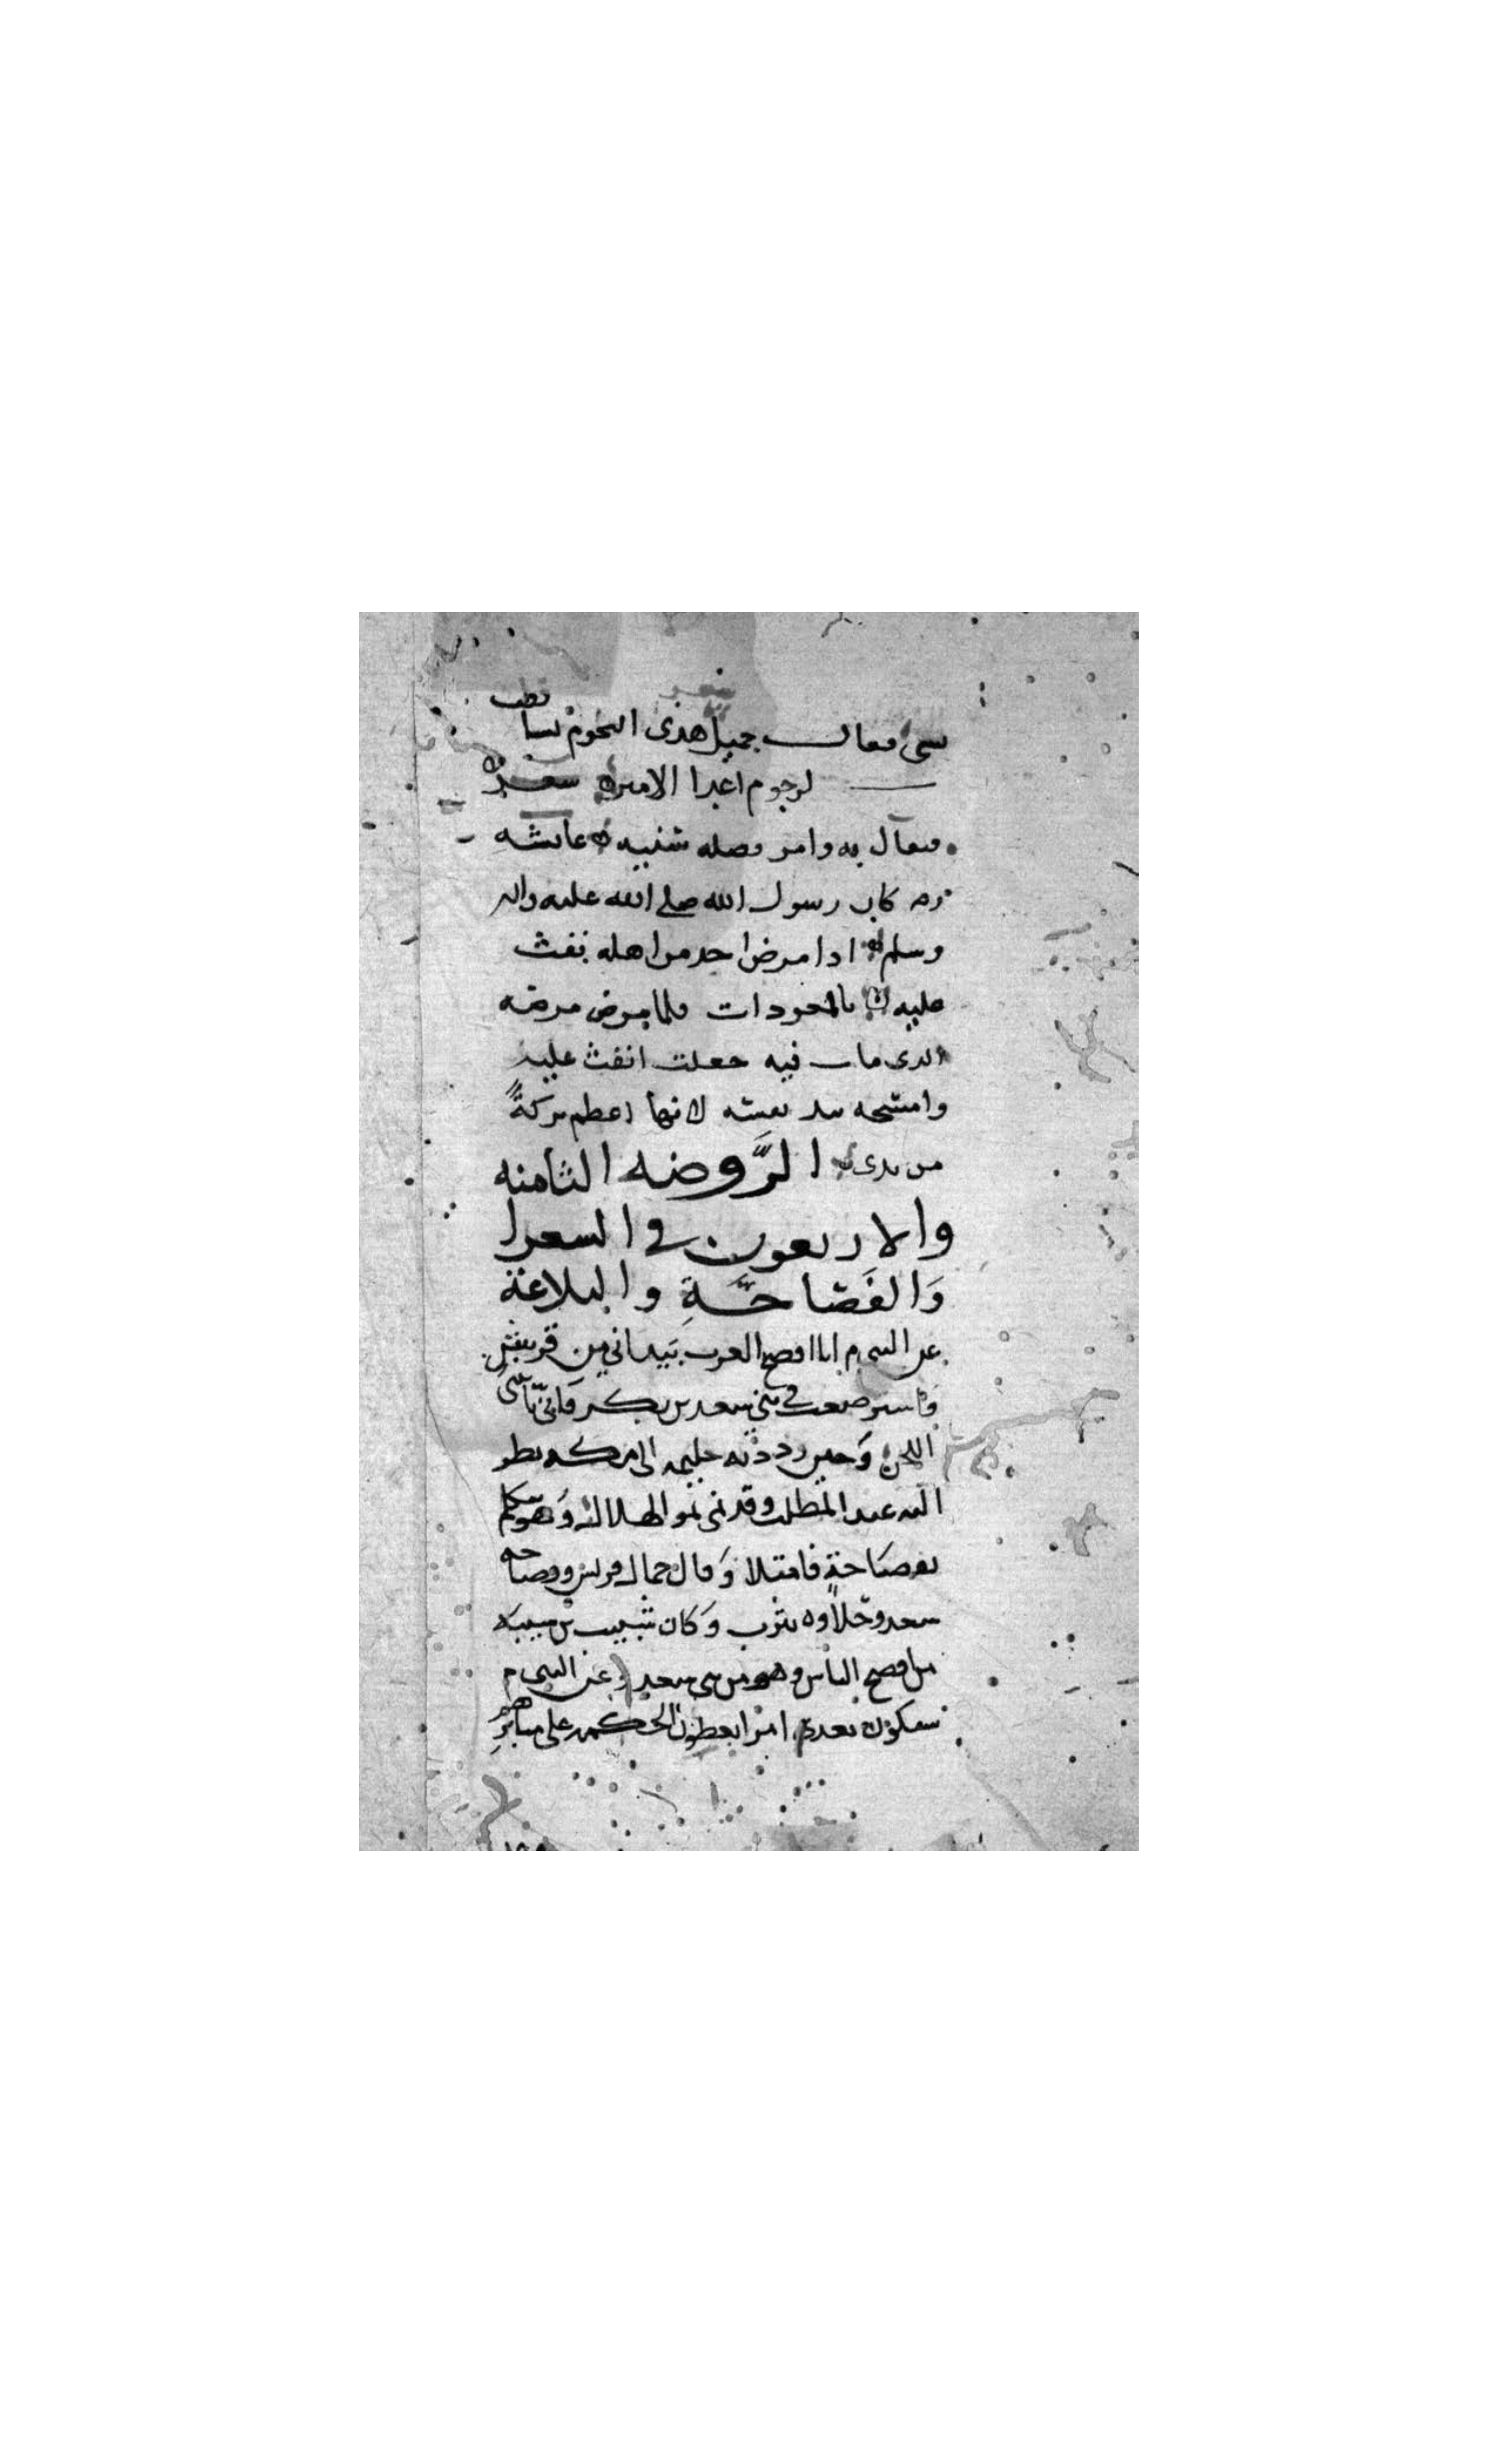 شعر
شيء فقال جميل هذى النجوم تساقطت
لرجوم اعدا الامير شعر
فتفآل به وامر وصله سنيه عائشه
رضه كان رسول الله صلى الله عليه واله
وسلم اذا مرض احد من اهله نفث
عليه بالمعوذات فلما مرض مرضه
الذى مات فيه جعلت انفث عليه
وامسحه بيد نفسه لانها اعظم بركةً
من يدى الرَّوضه الثامنه
والاربعون فى الشعرا
وَالفَصَاحَةِ والبلاغة
عن النبي م انا افصح العرب بَيداني من قريش
واسترضعت فى بني سعد بن بكر فَانّى يأتينى
اللحن وَحين ردّته حليمه الى مكه نظر
اليه عبد المطلب وقد نمى نمو الهلال وَهو يتكلم
بفصَاحةٍ فامتلا وَقال جمال قريش وفصاحه
سعد وحَلاوه يثرب وَكان شبيب بن شيبه
من افصح الناس وهو من بنى سعد عن النبي م
سيكون بعدى امرا يعطون الحكمه على منابرهم